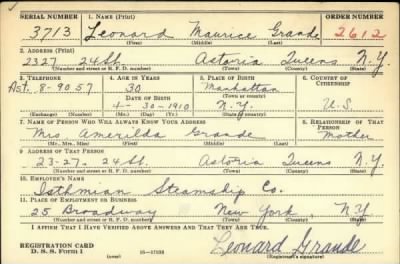 SERIAL NUMBER 1. NAME (Print) ORDER NUMBER
3713 Leonard Maurice Grande 2612
(First) (Middle) (Last)
2. ADDRESS (Print)
2327 24 St. Astoria Queens N.Y.
(Number and street or R. F. D. number) (Town) (County) (State)
3. TELEPHONE 4. AGE IN YEARS 5. PLACE OF BIRTH 6. COUNTRY OF CITIZENSHIP
Ast. 8-9057 30 Manhattan
DATE OF BIRTH (Town or county)
4-30-1910 N.Y. U.S.
(Exchange) (Number) (Mo.) (Day) (Yr.) (State or country)
7. NAME OF PERSON WHO WILL ALWAYS KNOW YOUR ADDRESS 8. RELATIONSHIP OF THAT PERSON
Mrs Amerilda Grande Mother
(Mr., Mrs., Miss) (First) (Middle) (Last)
9 ADDRESS OF THAT PERSON
23-27. 24 St. Astoria Queens N.Y.
(Number and street or R. F. D. number) (Town) (County) (State)
10. EMPLOYER'S NAME
Isthmian Steamship Co.
11. PLACE OF EMPLOYMENT OR BUSINESS
25 Broadway New York, N.Y.
(Number and street or R. F. D. number) (Town) (County) (State)
I AFFIRM THAT I HAVE VERIFIED ABOVE ANSWERS AND THAT THEY ARE TRUE.
REGISTRATION CARD Leonard Grande
D. S. S. Form 1 (over) (Registrant's signature)